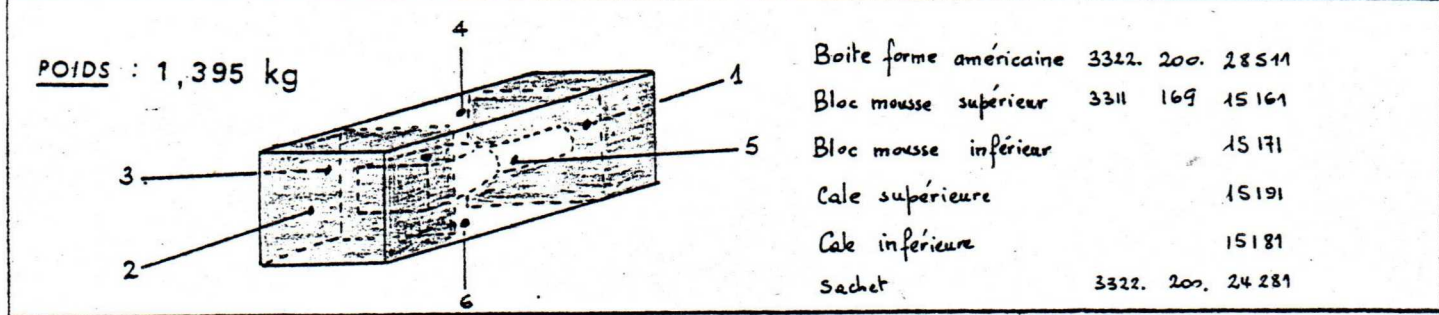 POIDS : 1,395 kg
4
1
5
3
2
6
Boite forme américaine 3322. 200. 28511
Bloc mousse supérieur 3311 169 15161
Bloc mousse inférieur 15171
Cale supérieure 15191
Cale inférieure 15181
Sachet 3322. 200. 24281